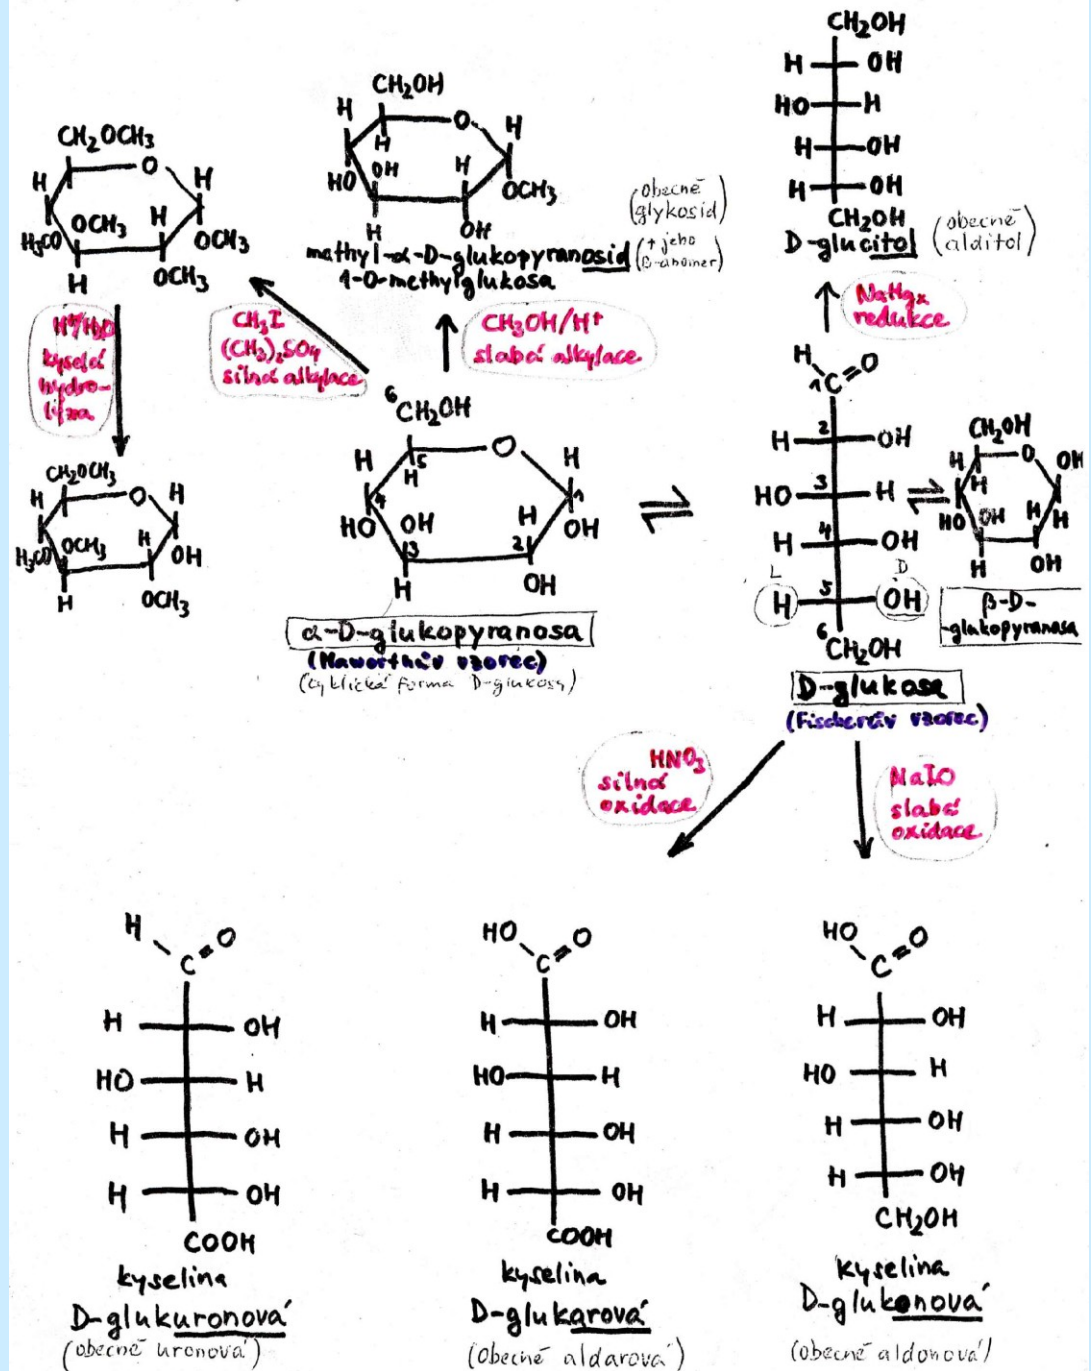 CH₂OCH₃
O
H
H
OCH₃
H
H₃CO
OCH₃
H
OCH₃
H⁺/H₂O
kyselá
hydro-
lýza
CH₂OCH₃
H
O
H
OCH₃
H
H₃CO
OH
H
OCH₃
CH₃I
(CH₃)₂SO₄
silná alkylace
CH₂OH
H
O
H
H
OH
H
HO
OCH₃
H
OH
(obecně
glykosid)
methyl-α-D-glukopyranosid
(+ jeho
β-anomer)
1-O-methylglukosa
CH₃OH/H⁺
slabá alkylace
6
CH₂OH
5
O
H
H
H
4
1
HO
OH
H
OH
3
2
H
OH
α-D-glukopyranosa
(Haworthův vzorec)
(cyklická forma D-glukosy)
CH₂OH
H OH
HO H
H OH
H OH
CH₂OH
D-glucitol
(obecně
alditol)
NaHgₓ
redukce
H
1C=O
2
H OH
3
HO H
4
H OH
L D
5
H OH
6
CH₂OH
D-glukosa
(Fischerův vzorec)
CH₂OH
H
O
OH
H
HO
OH
H
H
H
OH
β-D-
-glukopyranosa
HNO₃
silná
oxidace
NaIO
slabá
oxidace
H
C=O
H OH
HO H
H OH
H OH
COOH
kyselina
D-glukuronová
(obecně uronová)
HO
C=O
H OH
HO H
H OH
H OH
COOH
kyselina
D-glukarová
(obecně aldarová)
HO
C=O
H OH
HO H
H OH
H OH
CH₂OH
kyselina
D-glukonová
(obecně aldonová)